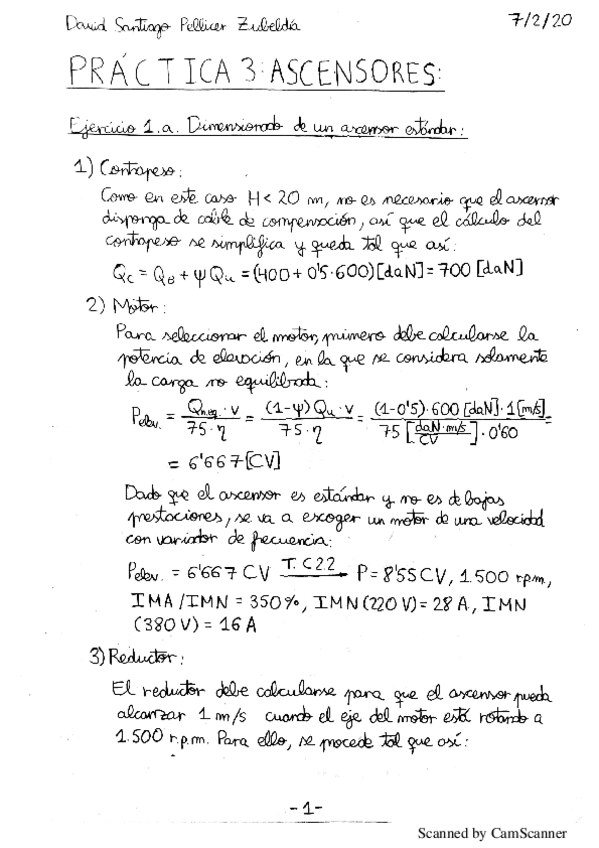 David Santiago Pellicer Zubeldía
7/2/20
PRÁCTICA 3: ASCENSORES:
Ejercicio 1.a. Dimensionado de un ascensor estándar:
1) Contrapeso:
Como en este caso H < 20 m, no es necesario que el ascensor
disponga de cable de compensación, así que el cálculo del
contrapeso se simplifica y queda tal que así:
Qc = QB + ψ Qu = (400 + 0'5·600) [daN] = 700 [daN]
2) Motor:
Para seleccionar el motor, primero debe calcularse la
potencia de elevación, en la que se considera solamente
la carga no equilibrada:
Pelev. = Qneq.·v / 75·η = (1-ψ) Qu·v / 75·η = (1-0'5)·600 [daN]·1 [m/s] / 75 [daN·m/s / CV]·0'60 =
= 6'667 [CV]
Dado que el ascensor es estándar y no es de bajas
prestaciones, se va a escoger un motor de una velocidad
con variador de frecuencia:
Pelev. = 6'667 CV T. C 2.2 → P = 8'55 CV, 1.500 rpm,
IMA/IMN = 350%, IMN (220 V) = 28 A, IMN
(380 V) = 16 A
3) Reductor:
El reductor debe calcularse para que el ascensor pueda
alcanzar 1 m/s cuando el eje del motor está rotando a
1.500 r.p.m. Para ello, se procede tal que así:
-1-
Scanned by CamScanner